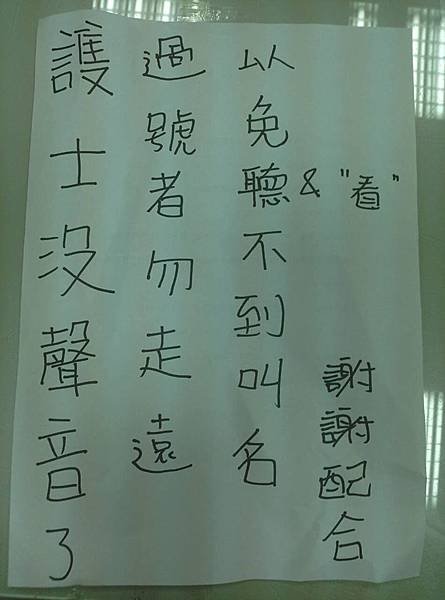 護士沒聲音了
過號者勿走遠
以免聽&"看"不到叫名
謝謝配合